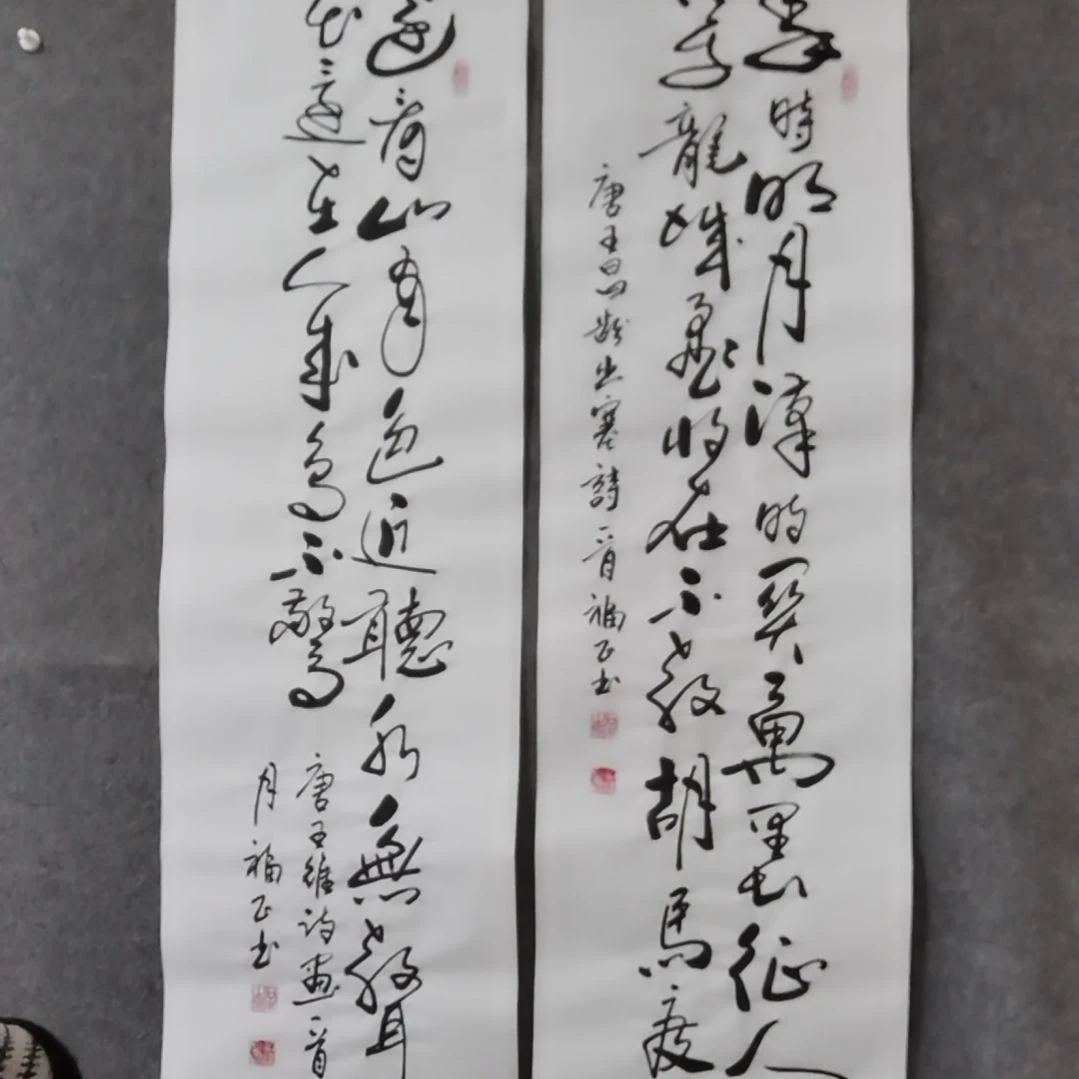 秦時明月漢時關萬里長征人
使龍城飛將在不教胡馬度
唐王昌齡出塞詩一首福正书
遠看山有色近聽水無聲
花還在人来鳥不驚
唐王維诗畫一首
月福正书